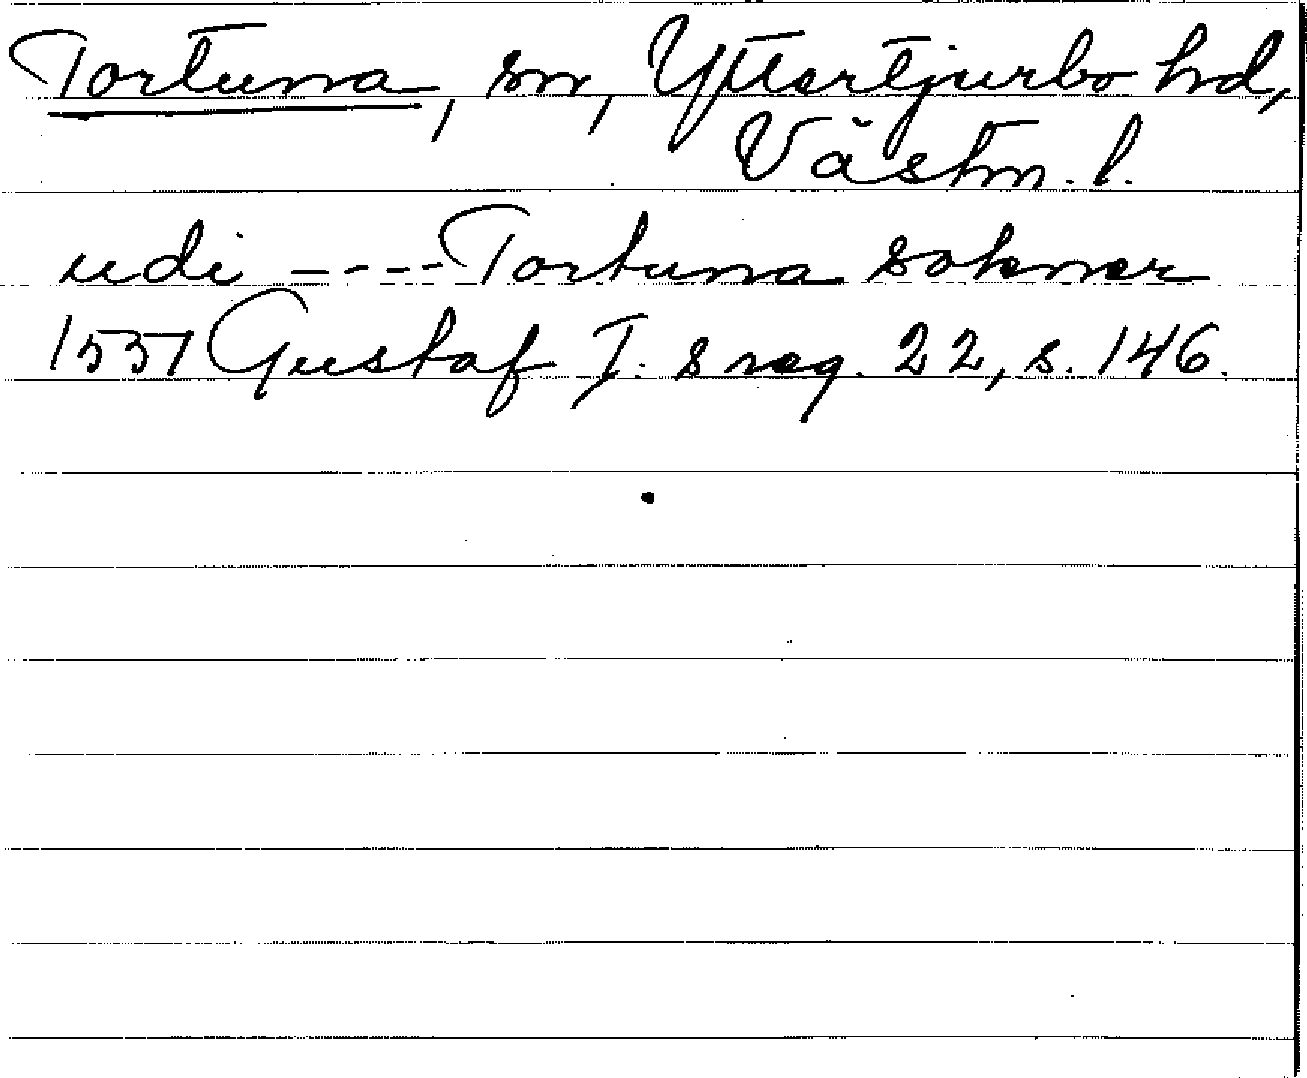 Tortuna, sn, Yttertjurbo hd,
Västm. l.
udi ---- Tortuna sokner
1551 Gustaf I:s reg. 22, s. 146.